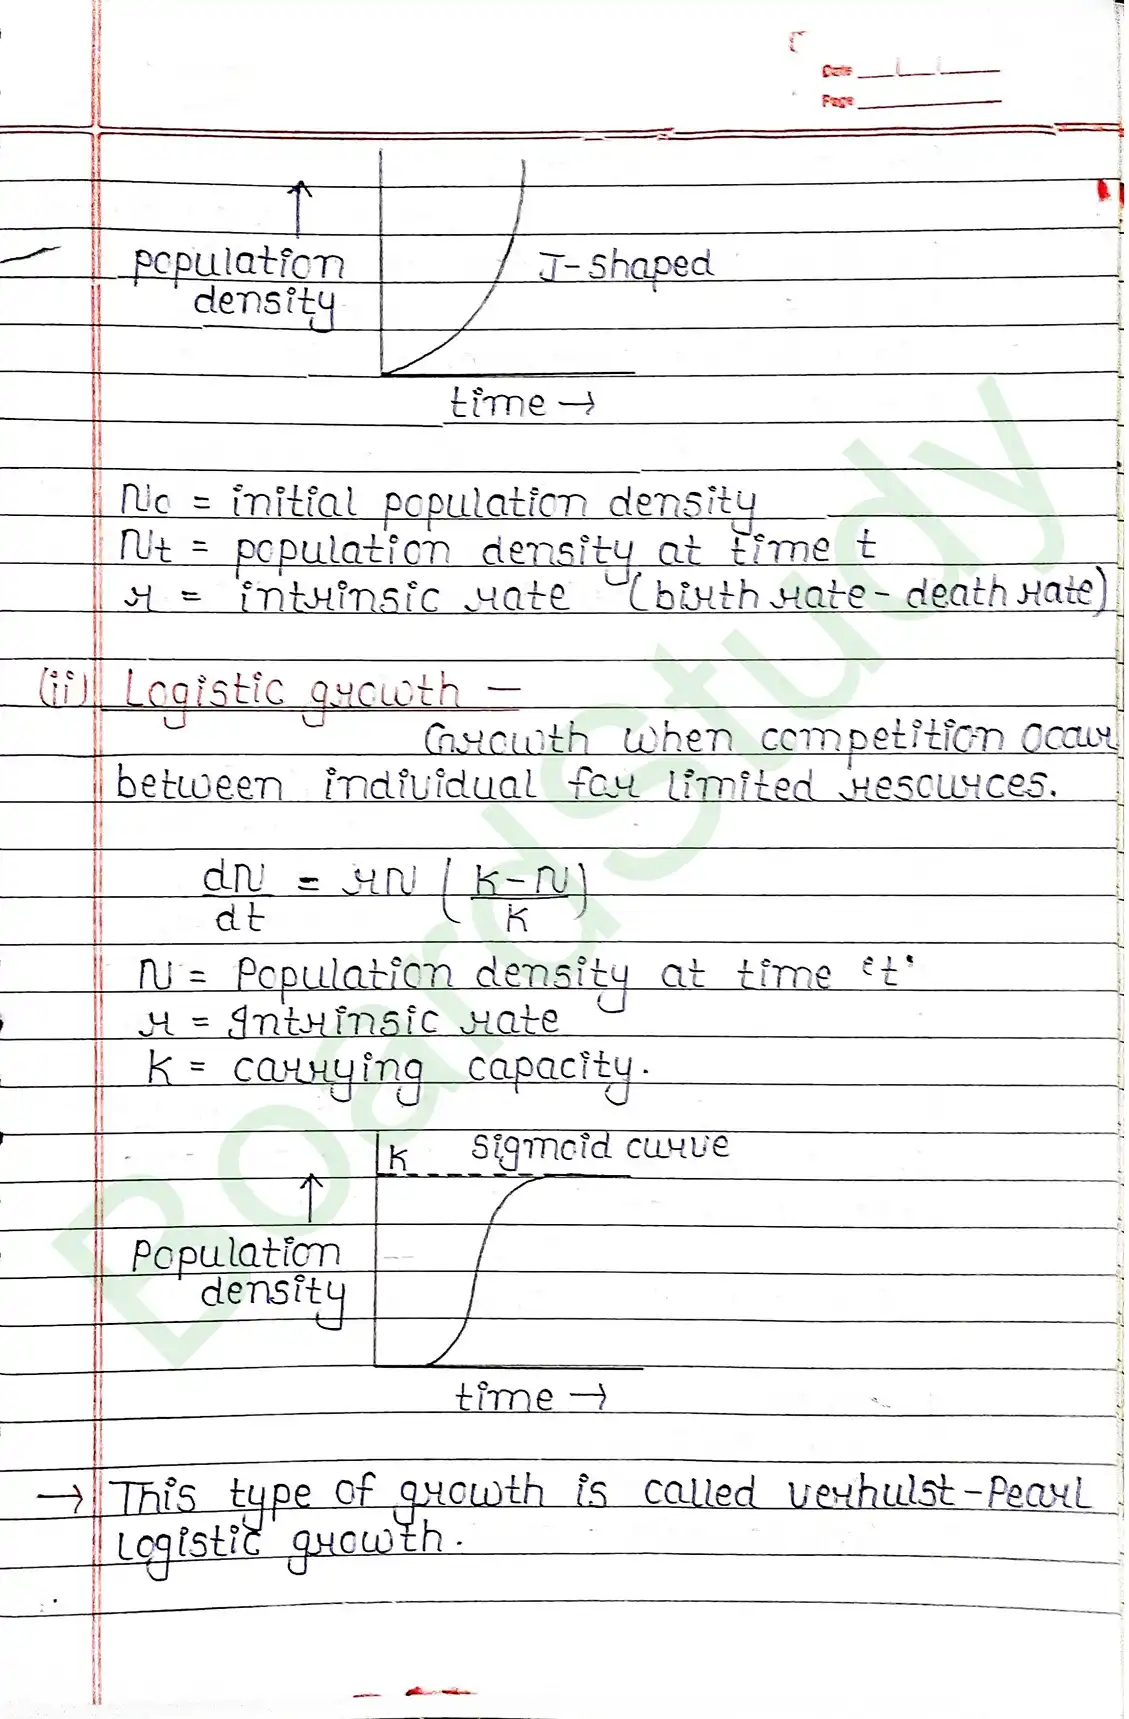 Date
Page
population
density
J-shaped
time →
No = initial population density
Nt = population density at time t
r = intrinsic rate (birth rate - death rate)
(ii) Logistic growth —
Growth when competition occur
between individual for limited resources.
dN/dt = rN (K-N/K)
N = Population density at time 't'
r = Intrinsic rate
K = carrying capacity.
K sigmoid curve
Population
density
time →
→ This type of growth is called verhulst-Pearl
logistic growth.
BoardStudy